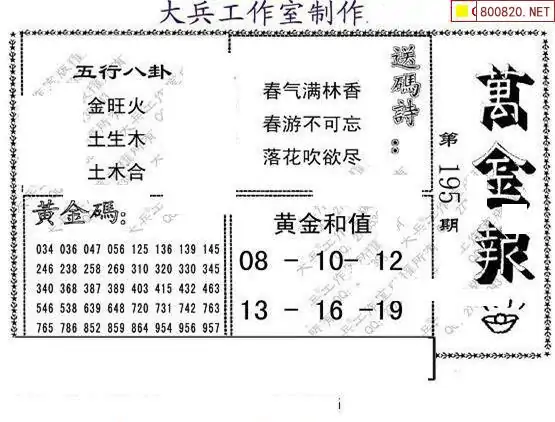 大兵工作室制作
800820.NET
五行八卦
金旺火
土生木
土木合
送碼詩：
春气满林香
春游不可忘
落花吹欲尽
萬金報
第195期
黃金碼：
034 036 047 056 125 136 139 145
246 238 258 269 310 320 330 345
340 368 387 389 403 415 432 463
546 538 639 648 720 731 742 763
765 786 852 859 864 954 956 957
黄金和值
08 - 10- 12
13 - 16 -19